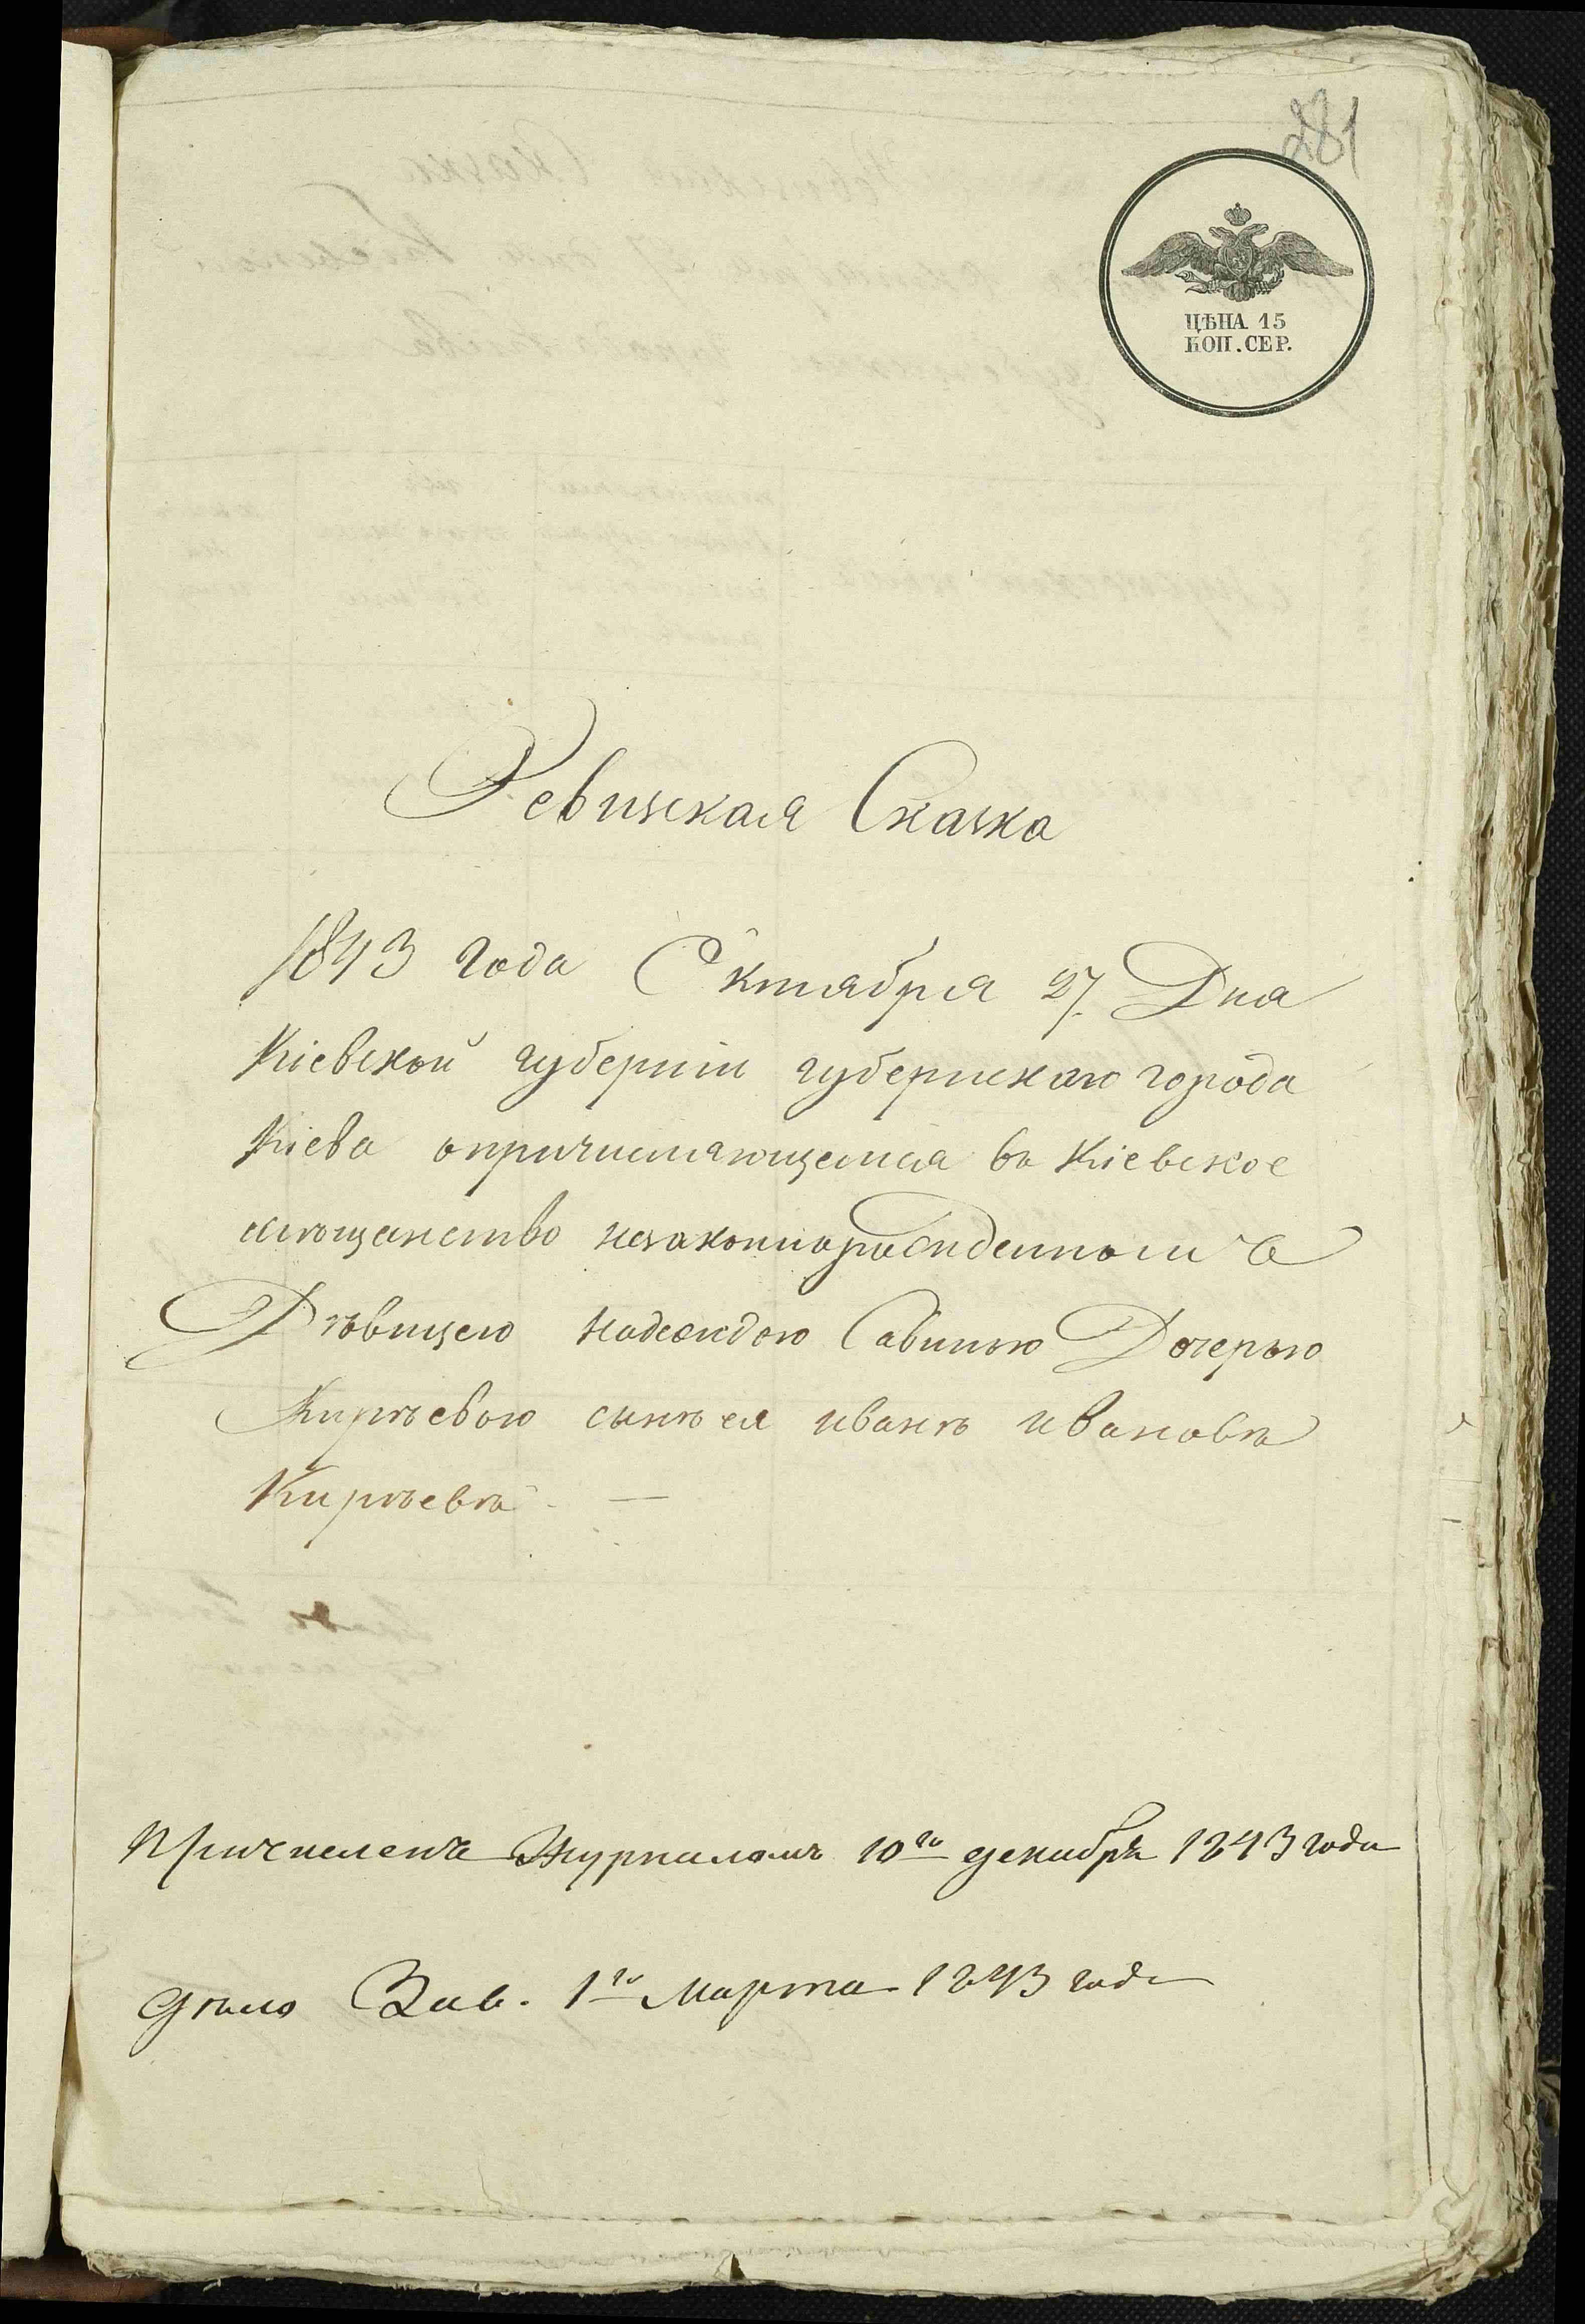 281
ЦѢНА 15
КОП. СЕР.
Ревизская Сказка
1843 года Октября 27. Дня
Кіевской губерніи губернскаго города
Кіева опричисляющемся въ Кіевское
мѣщанство незаконнорожденномъ
Дѣвицею Надеждою Савиною Дочерью
Кирѣевою сынѣ ея иванѣ ивановѣ
Кирѣевѣ. —
Причисленъ Журналомъ 10го декабря 1843 года
дѣло Зав. 1го Марта 1843 года